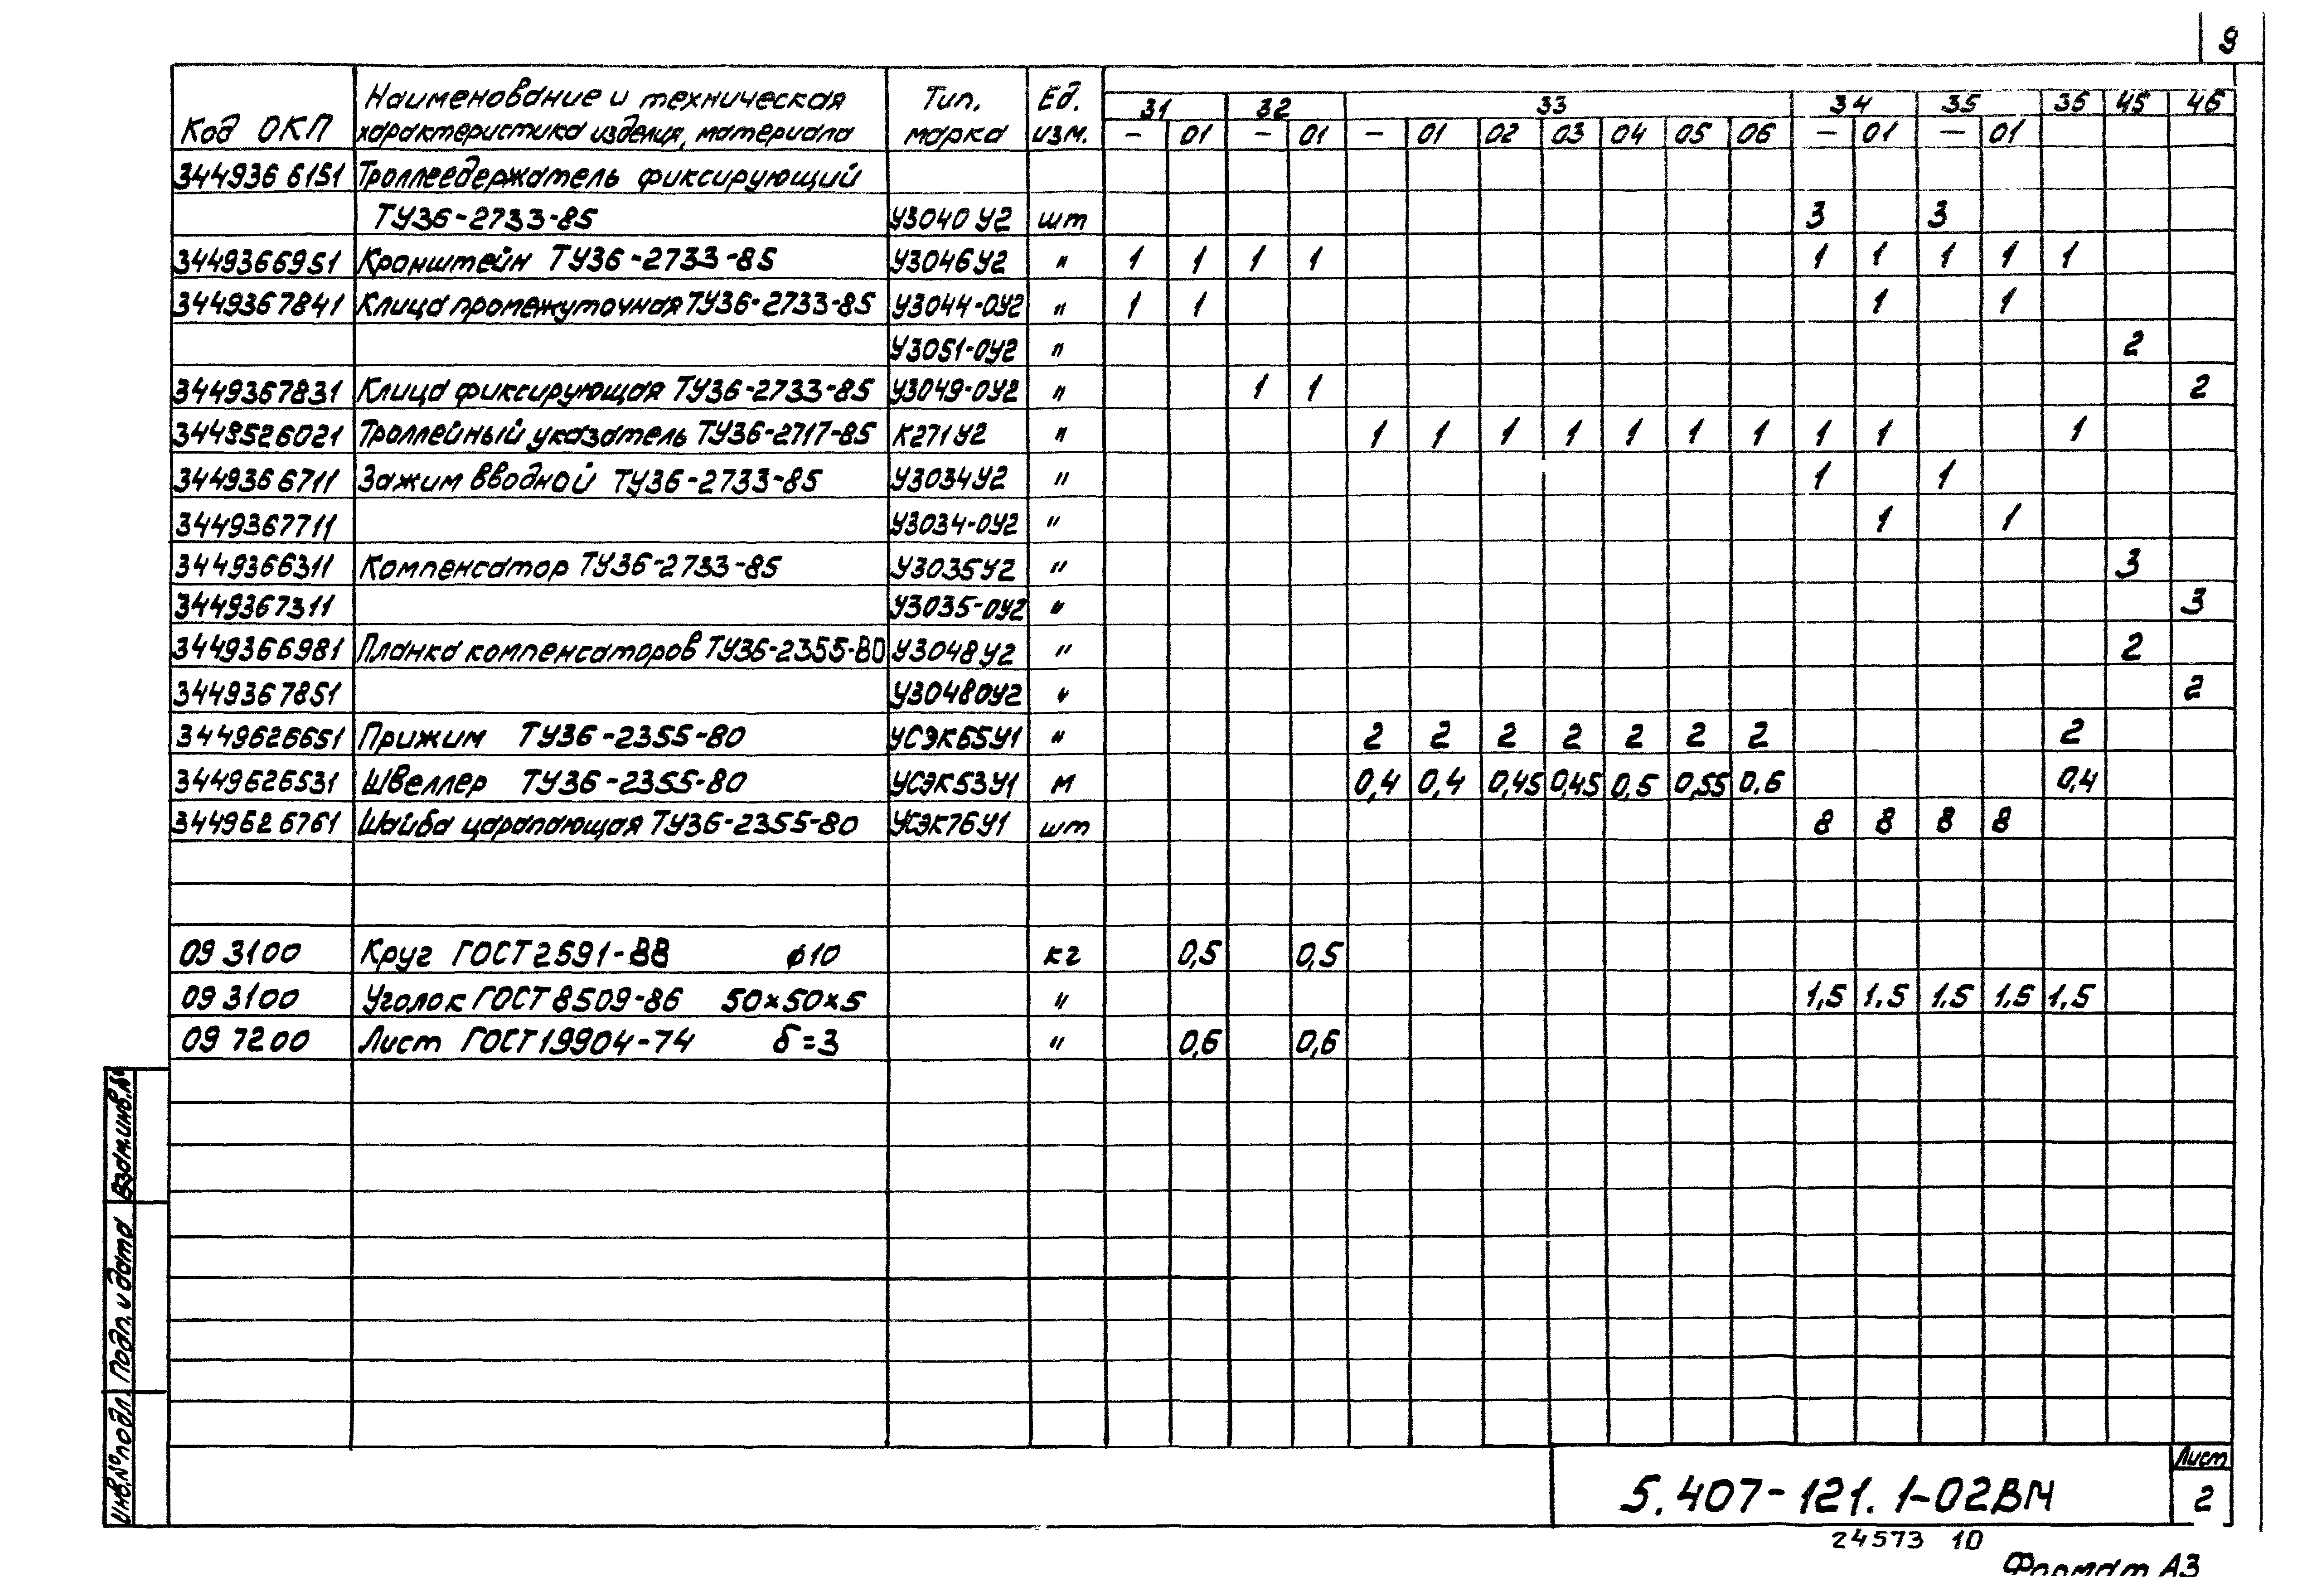 9
Код ОКП Наименование и техническая характеристика изделия, материала Тип, марка Ед. изм. 31 32 33 34 35 36 45 46
– 01 – 01 – 01 02 03 04 05 06 – 01 – 01
344936 6151 Троллеедержатель фиксирующий
ТУ36-2733-85 У3040 У2 шт 3 3
3449366951 Кронштейн ТУ36-2733-85 У3046У2 " 1 1 1 1 1 1 1 1 1
3449367841 Клица промежуточная ТУ36-2733-85 У3044-0У2 " 1 1 1 1
У3051-0У2 " 2
3449367831 Клица фиксирующая ТУ36-2733-85 У3049-0У2 " 1 1 2
3449526021 Троллейный указатель ТУ36-2717-85 К271У2 " 1 1 1 1 1 1 1 1 1 1
344936 6711 Зажим вводной ТУ36-2733-85 У3034У2 " 1 1
3449367711 У3034-0У2 " 1 1
3449366311 Компенсатор ТУ36-2733-85 У3035У2 " 3
3449367311 У3035-0У2 " 3
3449366981 Планка компенсаторов ТУ36-2355-80 У3048У2 " 2
3449367851 У3048 0У2 " 2
3449626651 Прижим ТУ36-2355-80 УСЭК65У1 " 2 2 2 2 2 2 2 2
3449626531 Швеллер ТУ36-2355-80 УСЭК53У1 м 0,4 0,4 0,45 0,45 0,5 0,55 0.6 0,4
344962 6761 Шайба царапающая ТУ36-2355-80 УСЭК76У1 шт 8 8 8 8
09 3100 Круг ГОСТ 2591-88 ø10 кг 0,5 0,5
09 3100 Уголок ГОСТ 8509-86 50×50×5 " 1,5 1.5 1.5 1.5 1,5
09 7200 Лист ГОСТ 19904-74 δ=3 " 0,6 0,6
Взам.инв.№
Подп. и дата
Инв.№подл.
5.407-121.1-02ВМ
Лист
2
24573 10
Формат А3